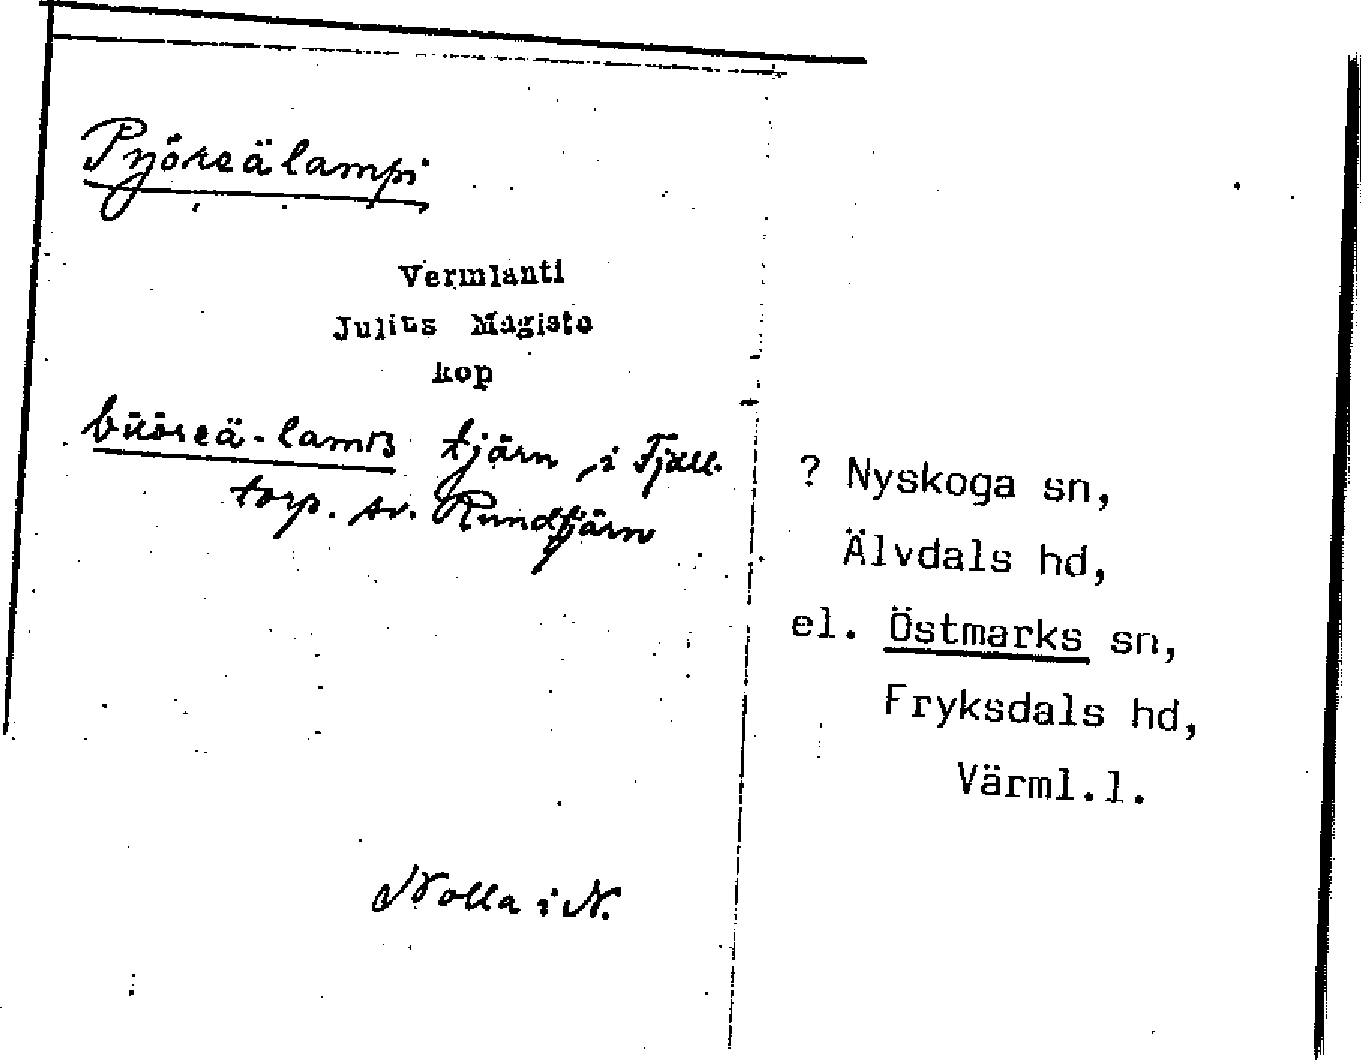 Pyöreälampi
Vermlanti
Julius Mägiste
kop
büöreä-lamʙ tjärn i Fjäll.
torp. sv. Rundtjärn
Nolla i N.
? Nyskoga sn,
Älvdals hd,
el. Östmarks sn,
Fryksdals hd,
Värml.l.